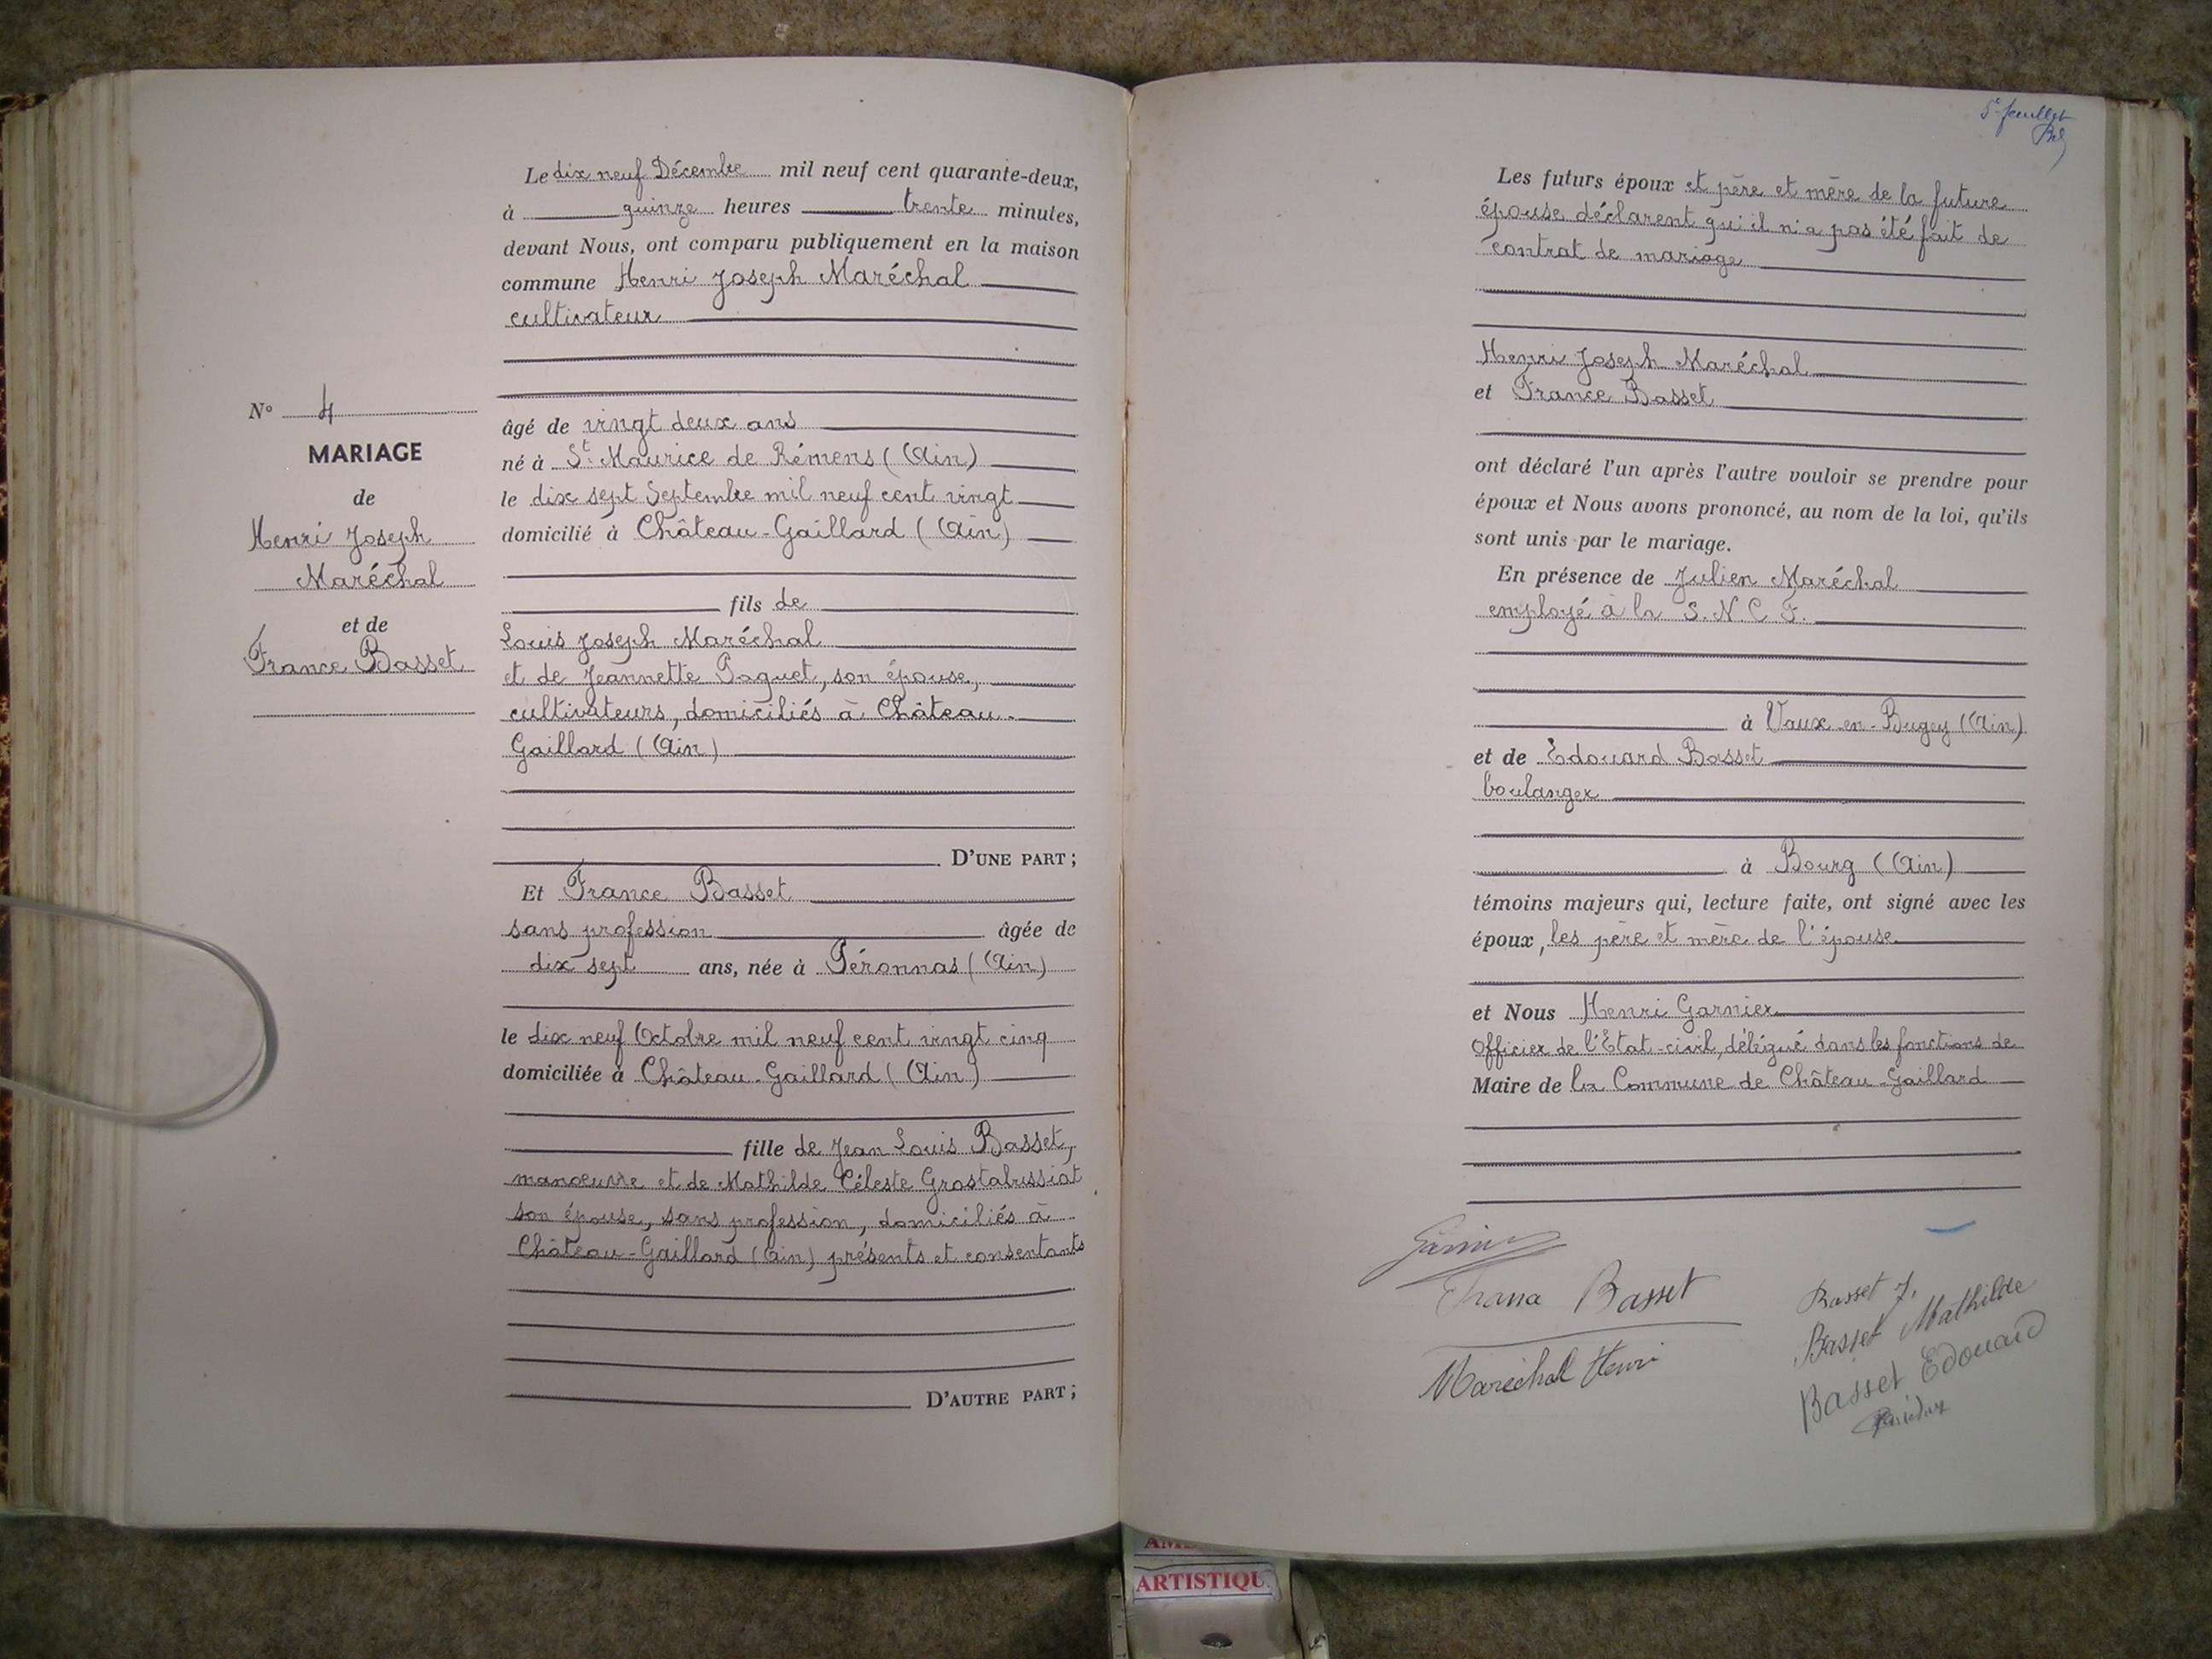 Le dix neuf Décembre mil neuf cent quarante-deux,
à quinze heures trente minutes,
devant Nous, ont comparu publiquement en la maison
commune Henri Joseph Maréchal
cultivateur
N° 4
MARIAGE
de
Henri Joseph
Maréchal
et de
France Basset
âgé de vingt deux ans
né à St. Maurice de Rémens (Ain)
le dix sept Septembre mil neuf cent vingt
domicilié à Château-Gaillard (Ain)
fils de
Louis Joseph Maréchal
et de Jeannette Paquet, son épouse,
cultivateurs, domiciliés à Château-
Gaillard (Ain)
D'UNE PART ;
Et France Basset
sans profession âgée de
dix sept ans, née à Péronnas (Ain)
le dix neuf Octobre mil neuf cent vingt cinq
domiciliée à Château-Gaillard (Ain)
fille de Jean Louis Basset,
manoeuvre et de Mathilde Céleste Grostabussiat
son épouse, sans profession, domiciliés à
Château-Gaillard (Ain) présents et consentants
D'AUTRE PART ;
5e feuillet
Les futurs époux et père et mère de la future
épouse déclarent qu'il n'a pas été fait de
contrat de mariage
Henri Joseph Maréchal
et France Basset
ont déclaré l'un après l'autre vouloir se prendre pour
époux et Nous avons prononcé, au nom de la loi, qu'ils
sont unis par le mariage.
En présence de Julien Maréchal
employé à la S.N.C.F.
à Vaux-en-Bugey (Ain)
et de Edouard Basset
boulanger
à Bourg (Ain)
témoins majeurs qui, lecture faite, ont signé avec les
époux, les père et mère de l'épouse
et Nous Henri Garnier
Officier de l'Etat-civil, délégué dans les fonctions de
Maire de la Commune de Château-Gaillard
Garnier
Basset
Maréchal Henri
Basset J.
Basset Mathilde
Basset Edouard
ARTISTIQU